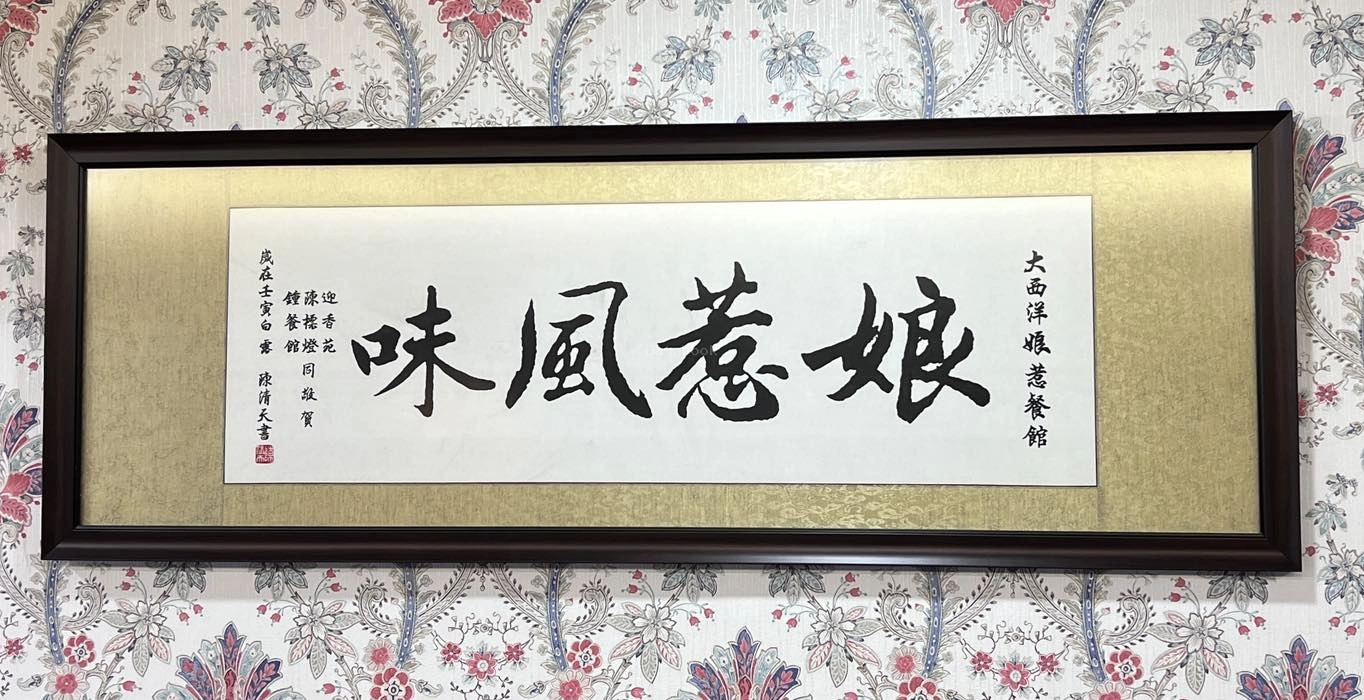 大西洋娘惹餐館
娘惹風味
迎香苑
陳標燈同敬賀
鐘餐館
歲在壬寅白露 陳清天書